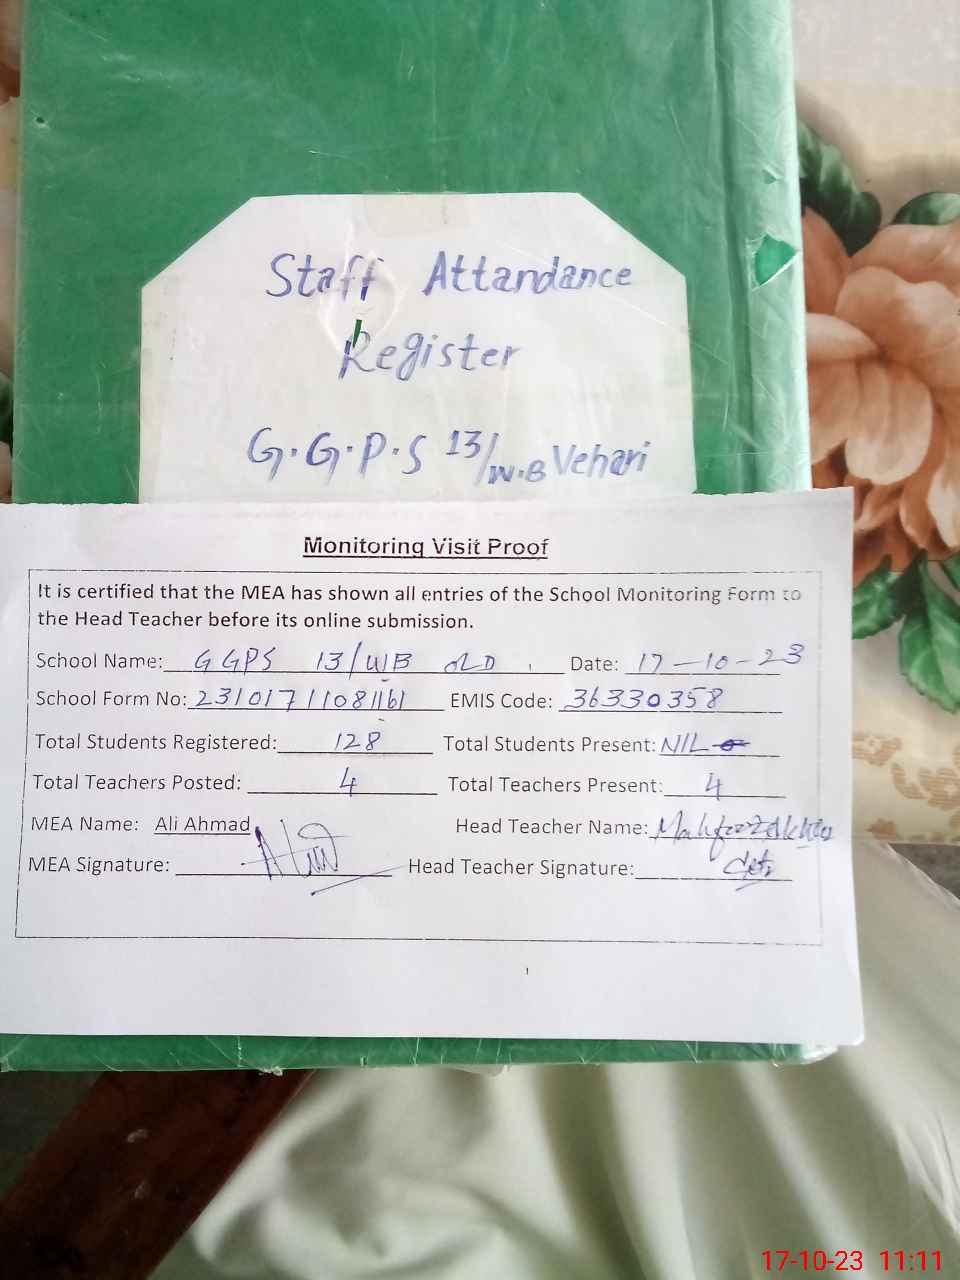 Staff Attandance
Register
G.G.P.S 13/W.B Vehari
Monitoring Visit Proof
It is certified that the MEA has shown all entries of the School Monitoring Form to
the Head Teacher before its online submission.
School Name: GGPS 13/WB OLD Date: 17-10-23
School Form No: 23101711081161 EMIS Code: 36330358
Total Students Registered: 128 Total Students Present: NIL
Total Teachers Posted: 4 Total Teachers Present: 4
MEA Name: Ali Ahmad Head Teacher Name: Mahfooz Akhtar
MEA Signature: Head Teacher Signature:
17-10-23 11:11